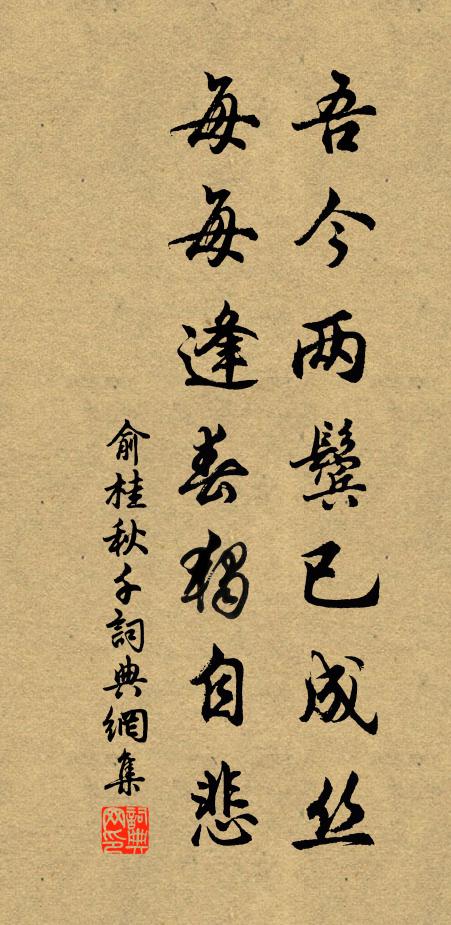 吾今两鬓已成丝
每每逢春独自悲
俞桂秋千詞典網集
詞典网印